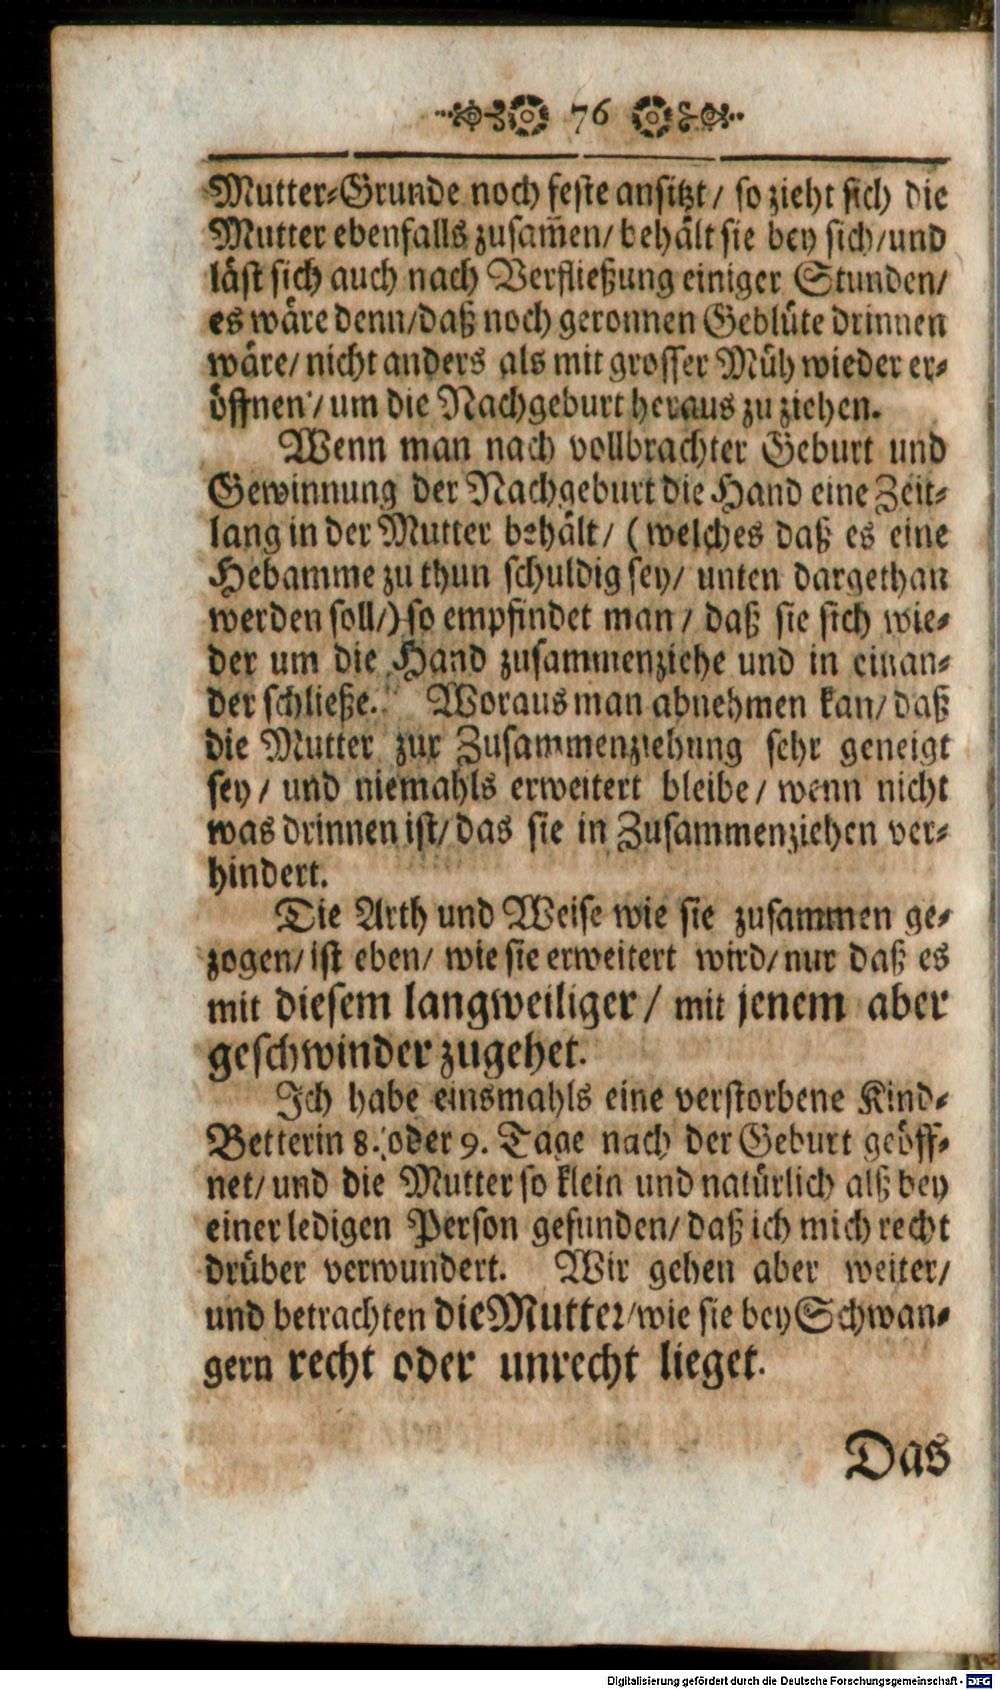 76
Mutter-Grunde noch feste ansitzt/ so zieht sich die
Mutter ebenfalls zusam̄en/ behält sie bey sich/ und
läst sich auch nach Verfließung einiger Stunden/
es wäre denn/ daß noch geronnen Geblüte drinnen
wäre/ nicht anders als mit grosser Müh wieder er-
öffnen/ um die Nachgeburt heraus zu ziehen.
Wenn man nach vollbrachter Geburt und
Gewinnung der Nachgeburt die Hand eine Zeit-
lang in der Mutter behält/ (welches daß es eine
Hebamme zu thun schuldig sey/ unten dargethan
werden soll/) so empfindet man/ daß sie sich wie-
der um die Hand zusammenziehe und in einan-
der schließe. Woraus man abnehmen kan/ daß
die Mutter zur Zusammenziehung sehr geneigt
sey/ und niemahls erweitert bleibe/ wenn nicht
was drinnen ist/ das sie in Zusammenziehen ver-
hindert.
Die Arth und Weise wie sie zusammen ge-
zogen/ ist eben/ wie sie erweitert wird/ nur daß es
mit diesem langweiliger/ mit jenem aber
geschwinder zugehet.
Ich habe einsmahls eine verstorbene Kind-
Betterin 8. oder 9. Tage nach der Geburt geöff-
net/ und die Mutter so klein und natürlich alß bey
einer ledigen Person gefunden/ daß ich mich recht
drüber verwundert. Wir gehen aber weiter/
und betrachten die Mutter/ wie sie bey Schwan-
gern recht oder unrecht lieget.
Das
Digitalisierung gefördert durch die Deutsche Forschungsgemeinschaft - DFG